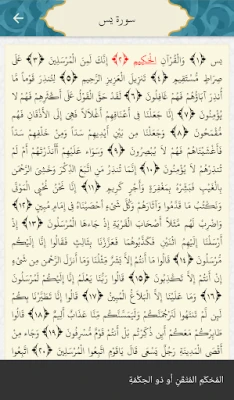 سورة يس
يس ﴿١﴾ وَالْقُرْآنِ الْحَكِيمِ ﴿٢﴾ إِنَّكَ لَمِنَ الْمُرْسَلِينَ ﴿٣﴾ عَلَى
صِرَاطٍ مُسْتَقِيمٍ ﴿٤﴾ تَنْزِيلَ الْعَزِيزِ الرَّحِيمِ ﴿٥﴾ لِتُنْذِرَ قَوْمًا مَا
أُنْذِرَ آبَاؤُهُمْ فَهُمْ غَافِلُونَ ﴿٦﴾ لَقَدْ حَقَّ الْقَوْلُ عَلَى أَكْثَرِهِمْ فَهُمْ لَا
يُؤْمِنُونَ ﴿٧﴾ إِنَّا جَعَلْنَا فِي أَعْنَاقِهِمْ أَغْلَالًا فَهِيَ إِلَى الْأَذْقَانِ فَهُمْ
مُقْمَحُونَ ﴿٨﴾ وَجَعَلْنَا مِنْ بَيْنِ أَيْدِيهِمْ سَدًّا وَمِنْ خَلْفِهِمْ سَدًّا
فَأَغْشَيْنَاهُمْ فَهُمْ لَا يُبْصِرُونَ ﴿٩﴾ وَسَوَاءٌ عَلَيْهِمْ أَأَنْذَرْتَهُمْ أَمْ لَمْ
تُنْذِرْهُمْ لَا يُؤْمِنُونَ ﴿١٠﴾ إِنَّمَا تُنْذِرُ مَنِ اتَّبَعَ الذِّكْرَ وَخَشِيَ الرَّحْمَنَ
بِالْغَيْبِ فَبَشِّرْهُ بِمَغْفِرَةٍ وَأَجْرٍ كَرِيمٍ ﴿١١﴾ إِنَّا نَحْنُ نُحْيِي الْمَوْتَى
وَنَكْتُبُ مَا قَدَّمُوا وَآثَارَهُمْ وَكُلَّ شَيْءٍ أَحْصَيْنَاهُ فِي إِمَامٍ مُبِينٍ ﴿١٢﴾
وَاضْرِبْ لَهُمْ مَثَلًا أَصْحَابَ الْقَرْيَةِ إِذْ جَاءَهَا الْمُرْسَلُونَ ﴿١٣﴾ إِذْ
أَرْسَلْنَا إِلَيْهِمُ اثْنَيْنِ فَكَذَّبُوهُمَا فَعَزَّزْنَا بِثَالِثٍ فَقَالُوا إِنَّا إِلَيْكُمْ
مُرْسَلُونَ ﴿١٤﴾ قَالُوا مَا أَنْتُمْ إِلَّا بَشَرٌ مِثْلُنَا وَمَا أَنْزَلَ الرَّحْمَنُ مِنْ شَيْءٍ
إِنْ أَنْتُمْ إِلَّا تَكْذِبُونَ ﴿١٥﴾ قَالُوا رَبُّنَا يَعْلَمُ إِنَّا إِلَيْكُمْ لَمُرْسَلُونَ
﴿١٦﴾ وَمَا عَلَيْنَا إِلَّا الْبَلَاغُ الْمُبِينُ ﴿١٧﴾ قَالُوا إِنَّا تَطَيَّرْنَا بِكُمْ
لَئِنْ لَمْ تَنْتَهُوا لَنَرْجُمَنَّكُمْ وَلَيَمَسَّنَّكُمْ مِنَّا عَذَابٌ أَلِيمٌ ﴿١٨﴾ قَالُوا
طَائِرُكُمْ مَعَكُمْ أَئِنْ ذُكِّرْتُمْ بَلْ أَنْتُمْ قَوْمٌ مُسْرِفُونَ ﴿١٩﴾ وَجَاءَ مِنْ
أَقْصَى الْمَدِينَةِ رَجُلٌ يَسْعَى قَالَ يَاقَوْمِ اتَّبِعُوا الْمُرْسَلِينَ ﴿٢٠﴾ اتَّبِعُوا
المُحْكَمِ المُتْقَنِ أو ذو الحِكْمَةِ